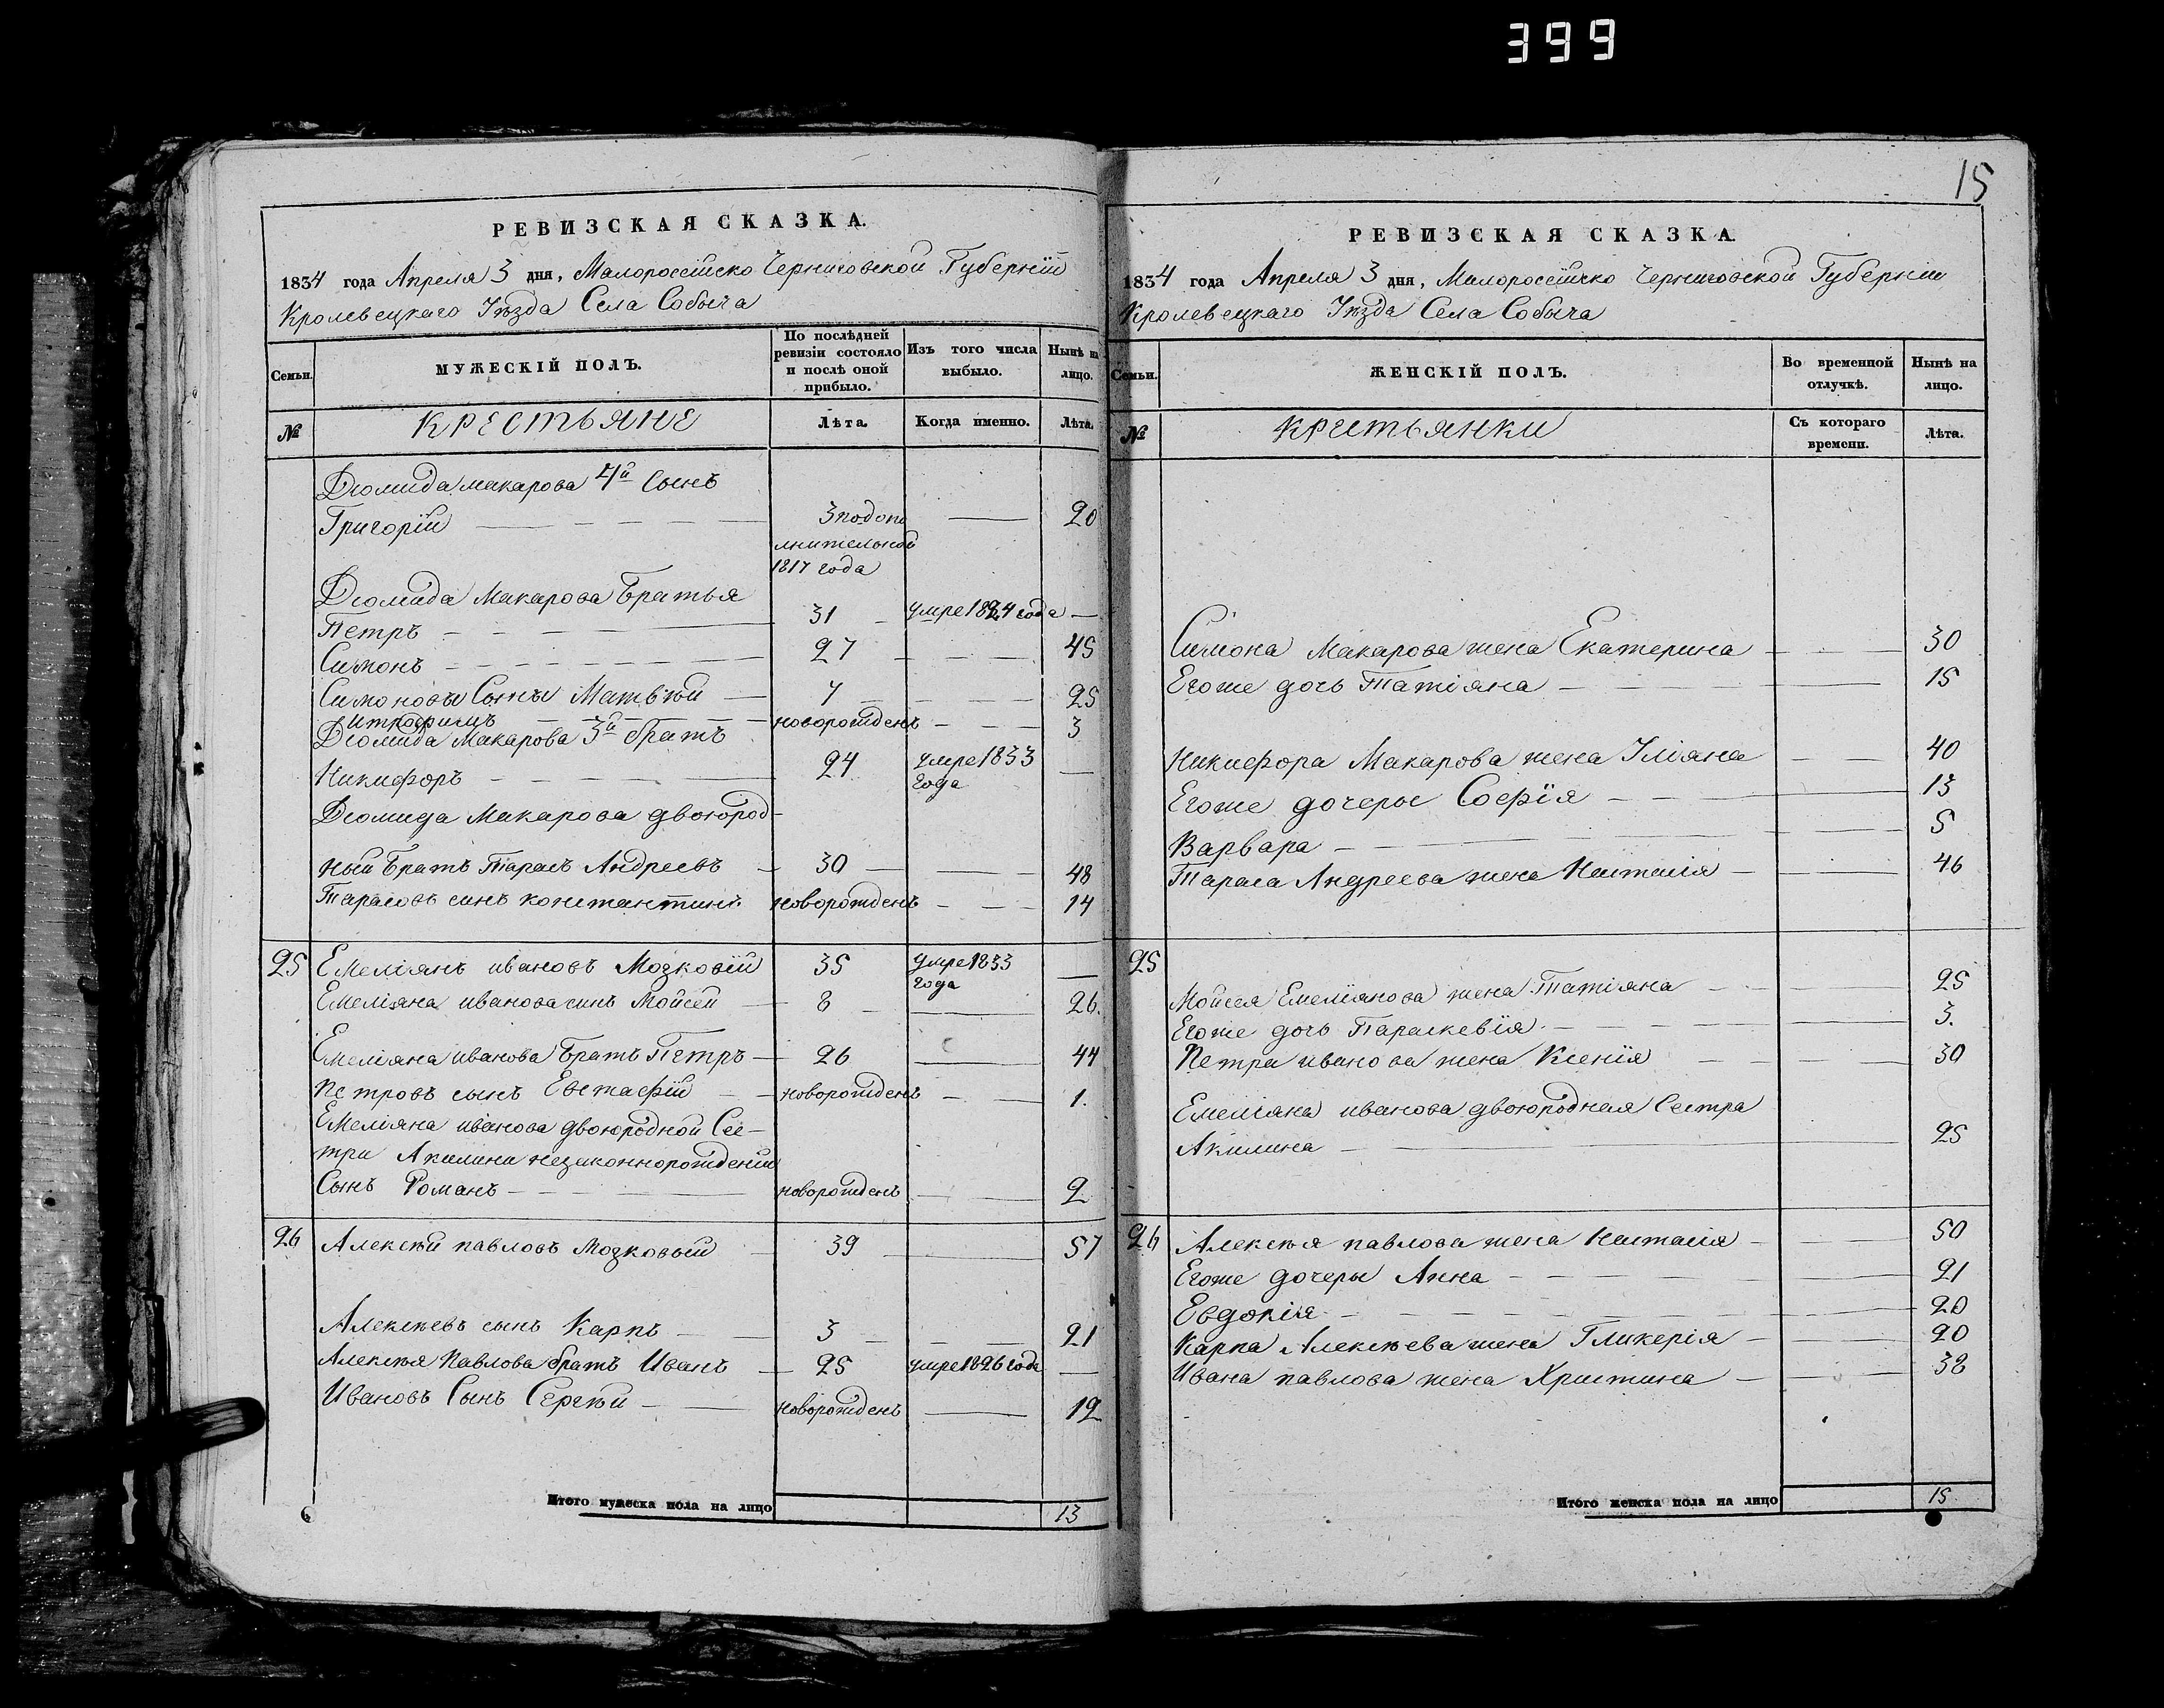 399
15
РЕВИЗСКАЯ СКАЗКА.
1834 года Апреля 3 дня, Малороссійско Черниговской Губерніи
Кролевецкаго Уѣзда Села Собыча
Семьи.
МУЖЕСКІЙ ПОЛЪ.
По послѣдней ревизіи состояло и послѣ оной прибыло.
Изъ того числа выбыло.
Нынѣ на лицо.
№
КРЕСТЬЯНЕ
Лѣта.
Когда именно.
Лѣта.
Диомида макарова 4й Сынъ
Григорій 3 подопо 20
лнительной
1817 года
Диомида Макарова Братья
Петръ 31 умре 1824 года
Симонъ 27 45
Симоновы Сыны Матвѣй 7 25
итрофимъ новорожденъ 3
Диомида Макарова 3й братъ
Никифоръ 24 умре 1833 года
Диомида Макарова двоюрод-
ный Братъ Тарасъ Андреевъ 30 48
Тарасовъ синъ константинъ новорожденъ 14
25 Емеліянъ ивановъ Мозковій 35 умре 1833 года
Емеліяна иванова синъ Мойсей 8 26.
Емеліяна иванова Братъ Петръ 26 44
Петровъ сынъ Евстафій новорожденъ 1.
Емеліяна иванова двоюродной Сес-
три Акилини незаконнорожденій
Сынъ Романъ новорожденъ 2
26 Алексѣй павловъ мозковый 39 57
Алексѣевъ сынъ Карпъ 3 21
Алексѣя Павлова братъ Иванъ 25 умре 1826 года
Ивановъ Сынъ Сергѣй новорожденъ 12
Итого мужеска пола на лицо 13
РЕВИЗСКАЯ СКАЗКА.
1834 года Апреля 3 дня, Малороссійско Черниговской Губерніи
Кролевецкаго Уѣзда Села Собыча
Семьи.
ЖЕНСКІЙ ПОЛЪ.
Во временной отлучкѣ.
Нынѣ на лицо.
№
Крестьянки
Съ котораго времени.
Лѣта.
Симона Макарова жена Екатерина 30
Егоже дочь Татіяна 15
Никифора Макарова жена Уліяна 40
Егоже дочеры Софія 13
Варвара 5
Тараса Андреева жена Настасія 46
25
Мойсея Емеліянова жена Татіяна 25
Егоже дочь Параскевія 3.
Петра иванова жена Ксенія 30
Емеліяна иванова двоюродная Сестра
Акилина 25
26 Алексѣя павлова жена Настасія 50
Егоже дочеры Анна 21
Евдокія 20
Карпа Алексѣева жена Гликерія 20
Ивана павлова жена Христина 38
Итого женска пола на лицо 15